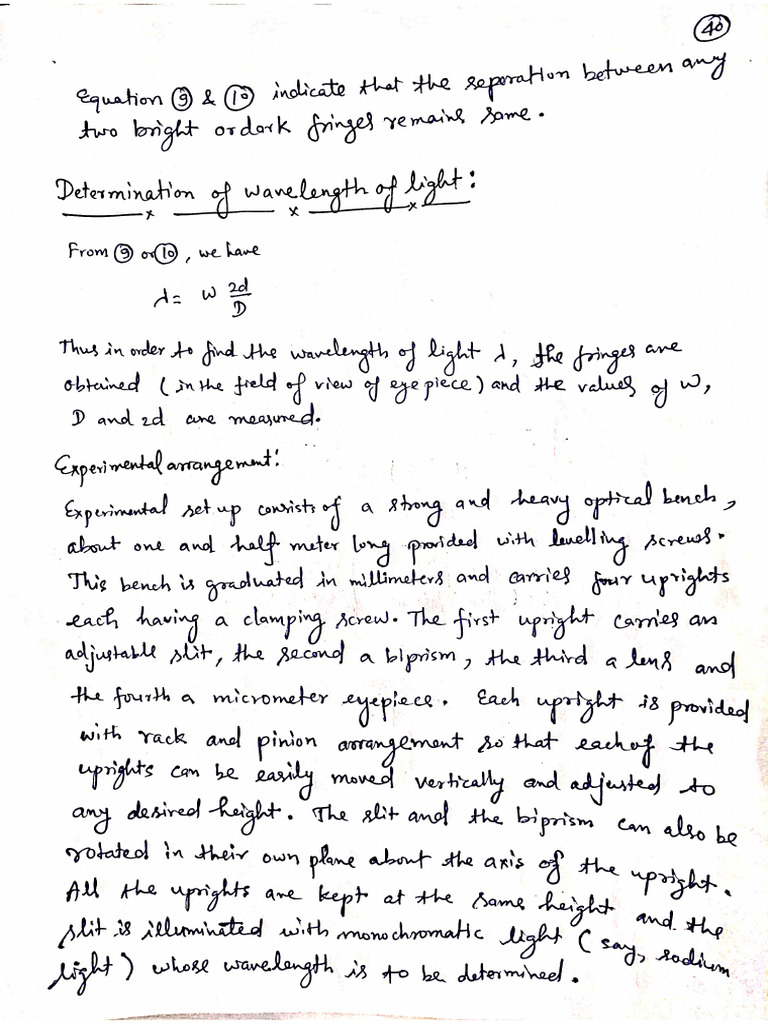 40
Equation ⑨ & ⑩ indicate that the seperation between any
two bright or dark fringes remains same.
Determination of wavelength of light:
From ⑨ or ⑩, we have
λ = W 2d/D
Thus in order to find the wavelength of light λ, the fringes are
obtained (in the field of view of eye piece) and the values of W,
D and 2d are measured.
Experimental arrangement:
Experimental set up consists of a strong and heavy optical bench,
about one and half meter long provided with levelling screws.
This bench is graduated in millimeters and carries four uprights
each having a clamping screw. The first upright carries an
adjustable slit, the second a biprism, the third a lens and
the fourth a micrometer eyepiece. Each upright is provided
with rack and pinion arrangement so that each of the
uprights can be easily moved vertically and adjusted to
any desired height. The slit and the biprism can also be
rotated in their own plane about the axis of the upright.
All the uprights are kept at the same height and the
slit is illuminated with monochromatic light (say, sodium
light) whose wavelength is to be determined.